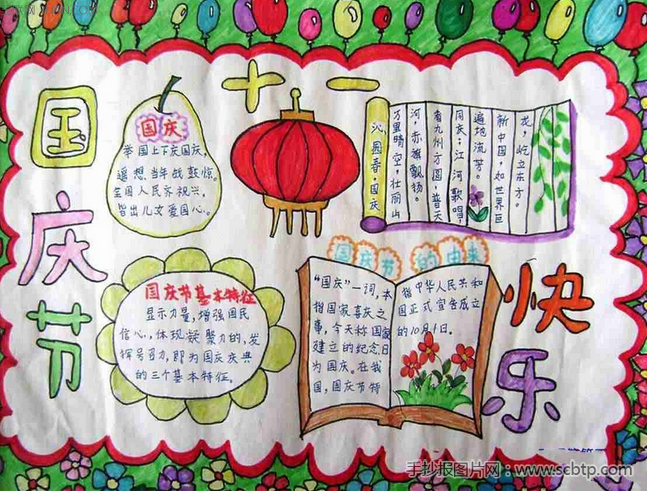 十一
国庆节
快乐
国庆
举国上下庆国庆,
遥想当年战鼓惊。
全国人民齐祝兴,
皆出儿女爱国心。
沁园春·国庆
万里晴空,壮丽山
河,赤旗飘扬。
看九州方圆,普天
同庆;江河歌唱,
遍地流芳。
新中国,如世界巨
龙,屹立东方。
国庆节基本特征
显示力量,增强国民
信心,体现凝聚力的,发
挥号召力,即为国庆庆典
的三个基本特征。
国庆节的由来
“国庆”一词,本
指国家喜庆之
事,今天称国家
建立的纪念日
为国庆。在我
国,国庆节特
指中华人民共和
国正式宣告成立
的10月1日。
手抄报图片网:www.scbtp.com